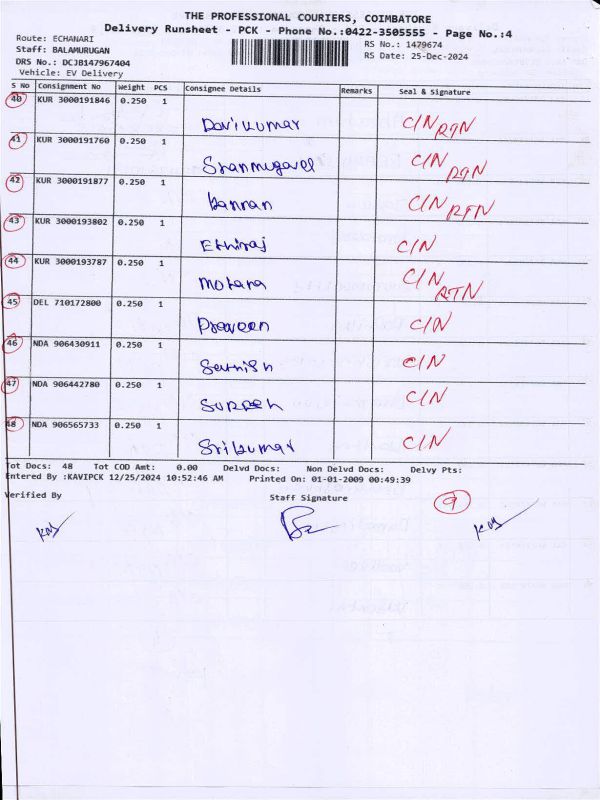 THE PROFESSIONAL COURIERS, COIMBATORE
Delivery Runsheet - PCK - Phone No.:0422-3505555 - Page No.:4
Route: ECHANARI
RS No.: 1479674
Staff: BALAMURUGAN
RS Date: 25-Dec-2024
DRS No.: DCJB147967404
Vehicle: EV Delivery
S No Consignment No Weight PCS Consignee Details Remarks Seal & Signature
40 KUR 3000191846 0.250 1
Davikumar C/N RTN
41 KUR 3000191760 0.250 1
Shanmugavel C/N RTN
42 KUR 3000191877 0.250 1
Kannan C/N RTN
43 KUR 3000193802 0.250 1
Ethiraj C/N
44 KUR 3000193787 0.250 1
Mohana C/N RTN
45 DEL 710172800 0.250 1
Praveen C/N
46 NDA 906430911 0.250 1
Sathish C/N
47 NDA 906442780 0.250 1
Suresh C/N
48 NDA 906565733 0.250 1
Srikumar C/N
Tot Docs: 48 Tot COD Amt: 0.00 Delvd Docs: Non Delvd Docs: Delvy Pts:
Entered By :KAVIPCK 12/25/2024 10:52:46 AM Printed On: 01-01-2009 00:49:39
Verified By Staff Signature 9